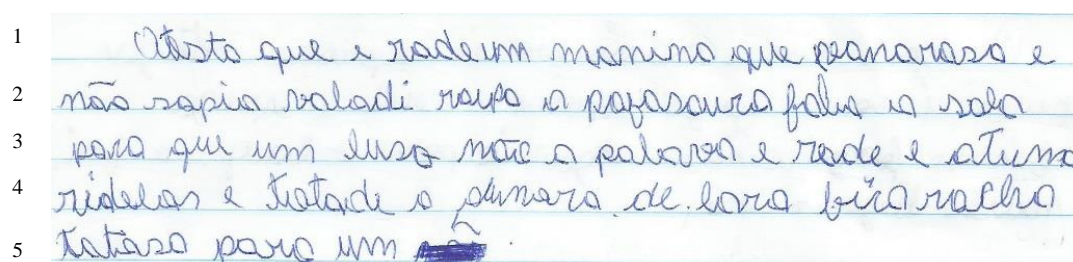 1 Otesto que e rode um manino que peanaroso e
2 não sapia valadi roupa a pofasoura falou a sala
3 para que um luso não a palavra e rode e atuma
4 ridelas e tratade o de lara bira racha
5 tataso para um